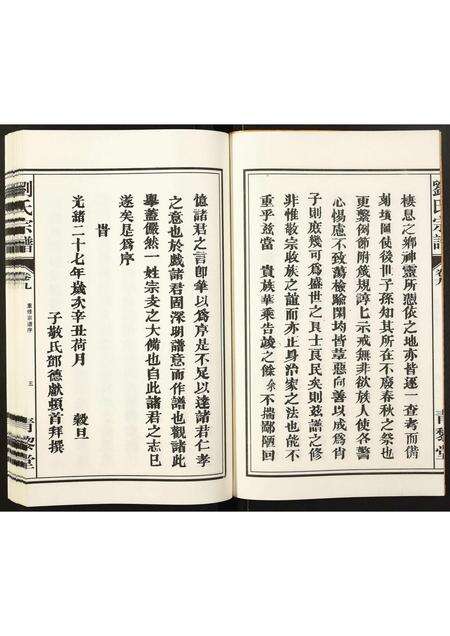 劉氏宗譜
卷九
青黎堂
棲息之鄉神靈所憑依之地亦皆逐一查考而備
刻墳圖使後世子孫知其所在不廢春秋之祭也
更繫例節附箴規諄七示戒無非欲族人使各警
心惕慮不致蕩檢踰閑均皆葦惡向善以成為肖
子則庶幾可為盛世之良士良民矣則茲譜之修
非惟敬宗收族之誼而亦正身治家之法也能不
重乎茲當　貴族華乘告竣之餘余不揣鄙陋回
憶諸君之言卽筆以為序是不足以達諸君仁孝
之意也於戲諸君固深明譜意而作譜也觀諸此
舉蓋儼然一姓宗支之大備也自此諸君之志已
遂矣是為序
皆
光緒二十七年歲次辛丑荷月　穀旦
子敬氏鄧德獻頓首拜撰
劉氏宗譜
卷九
重修宗譜序
五
青黎堂